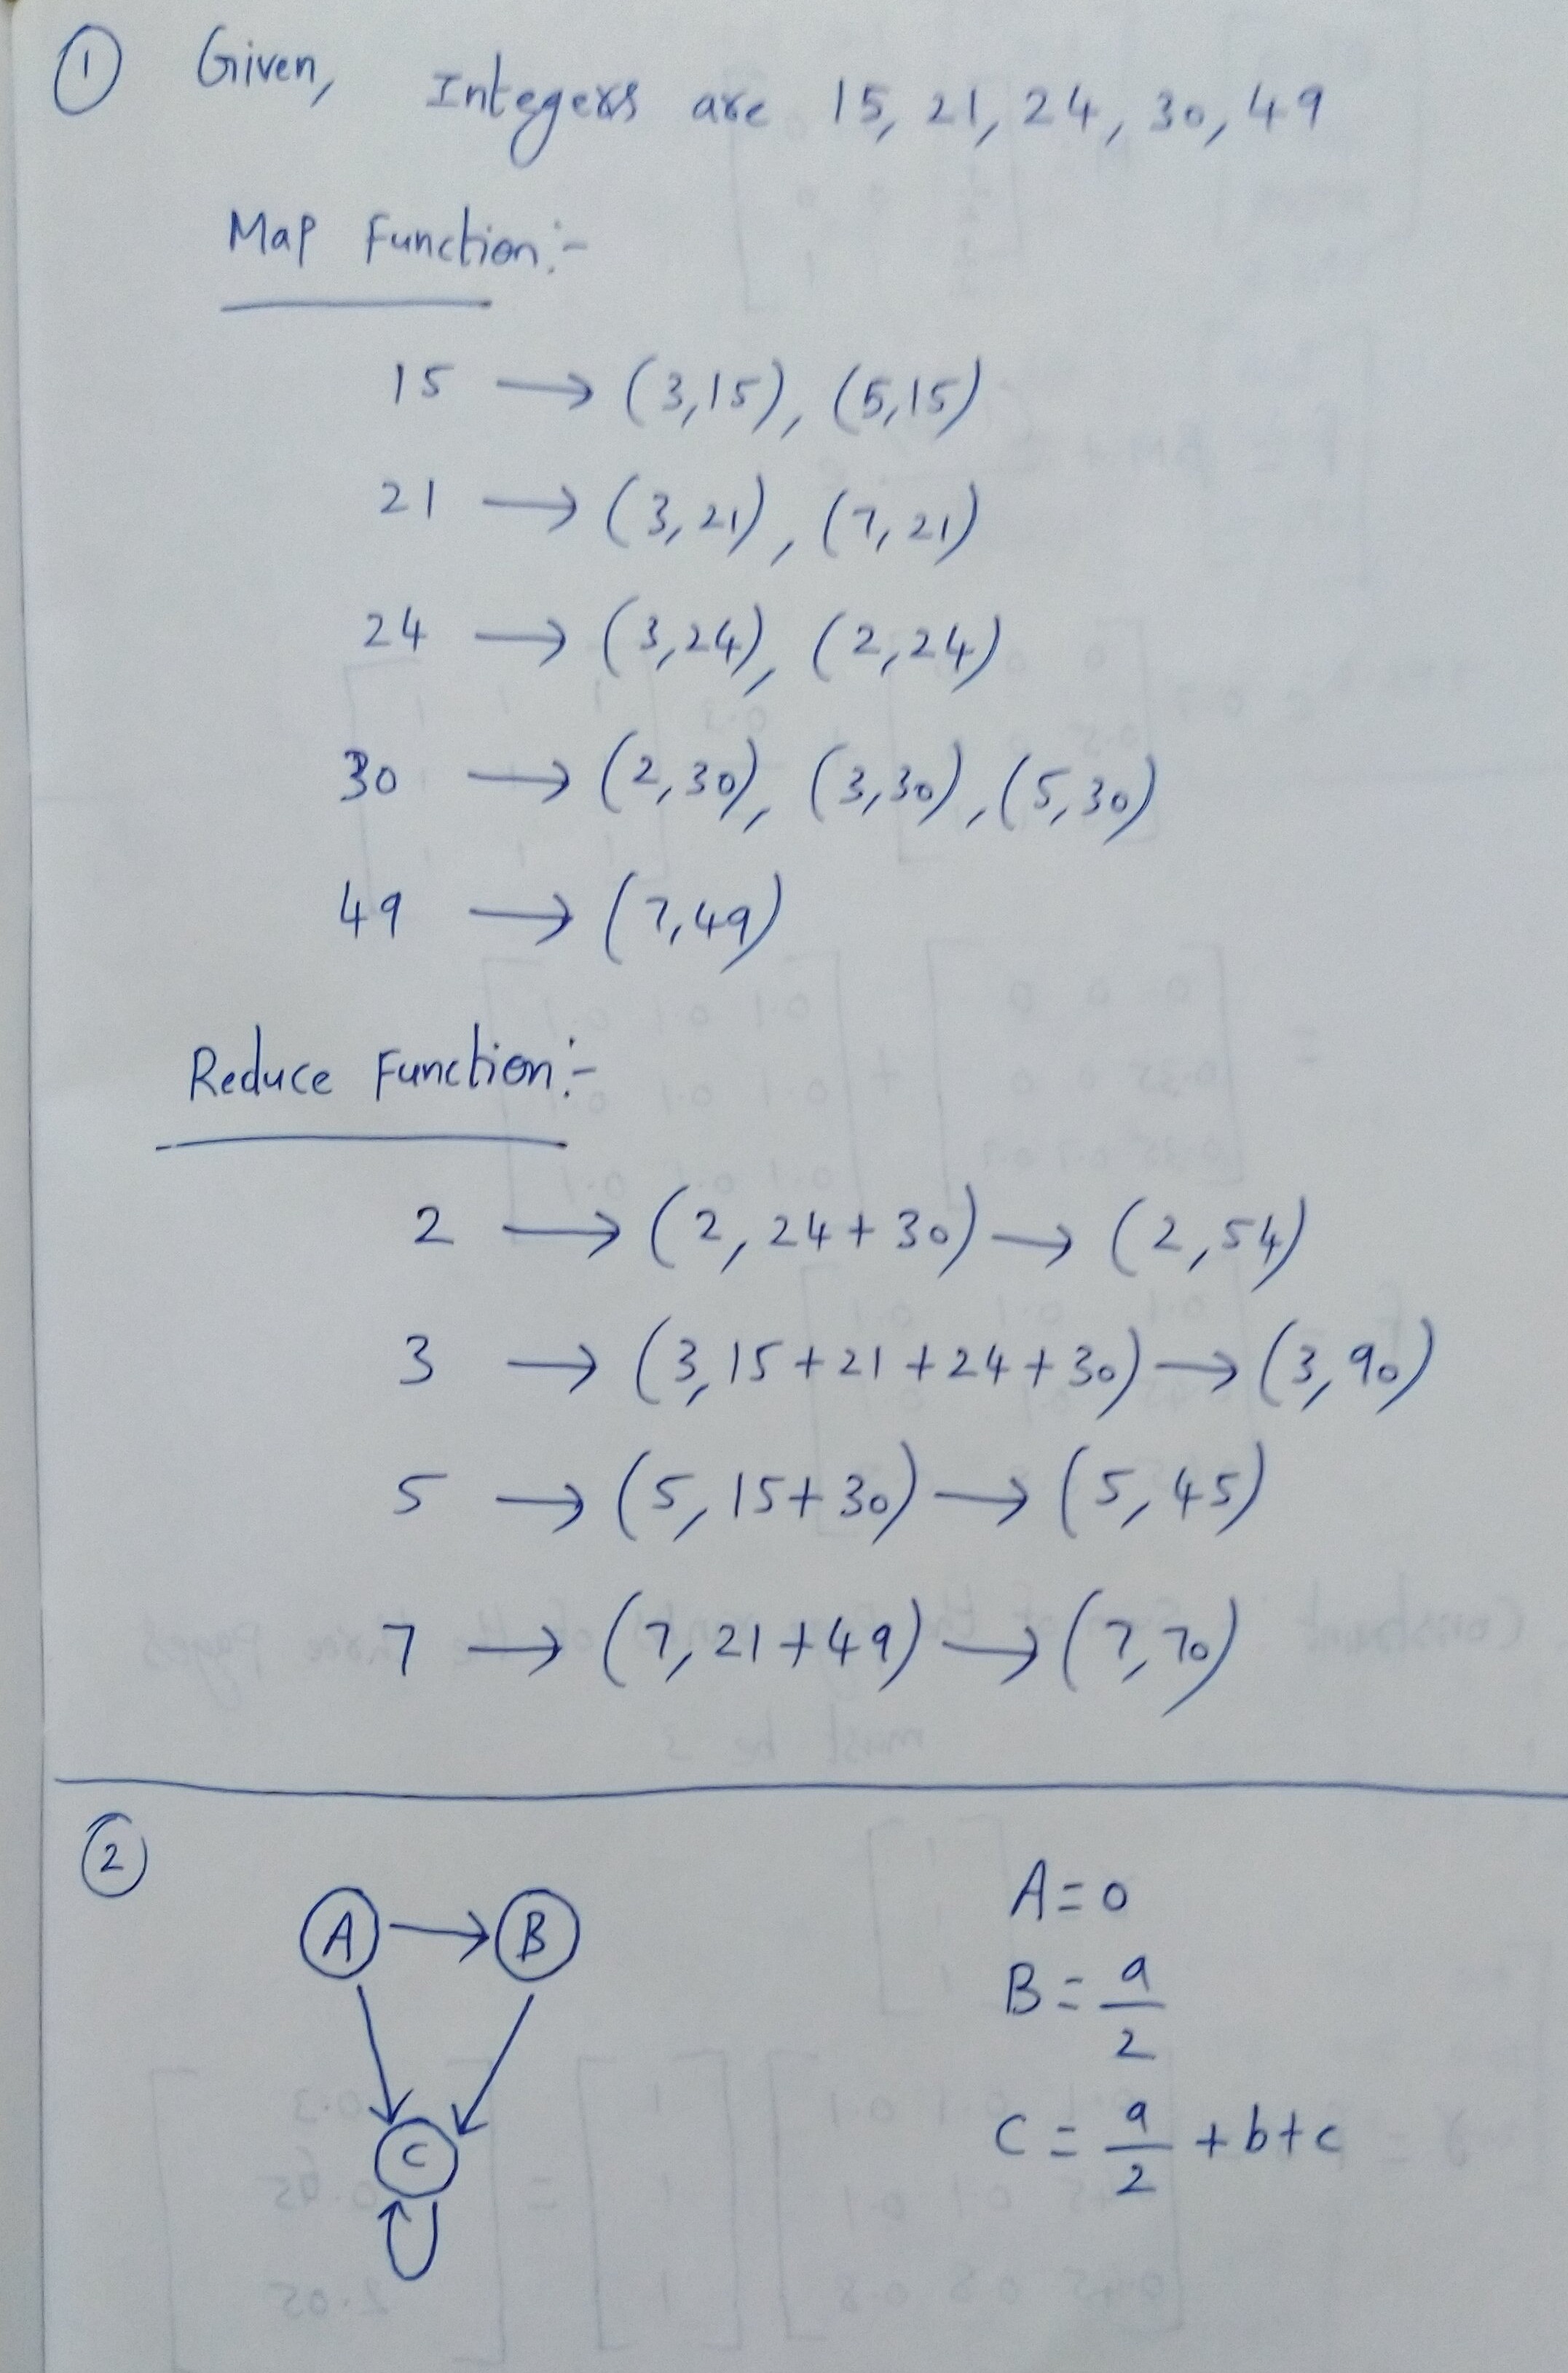 ① Given, Integers are 15, 21, 24, 30, 49
Map Function:-
15 → (3,15), (5,15)
21 → (3,21), (7,21)
24 → (3,24), (2,24)
30 → (2,30), (3,30), (5,30)
49 → (7,49)
Reduce Function:-
2 → (2, 24+30) → (2,54)
3 → (3,15+21+24+30) → (3,90)
5 → (5, 15+30) → (5,45)
7 → (7,21+49) → (7,70)
②
A → B
C
A=0
B= a/2
C= a/2 +b+c